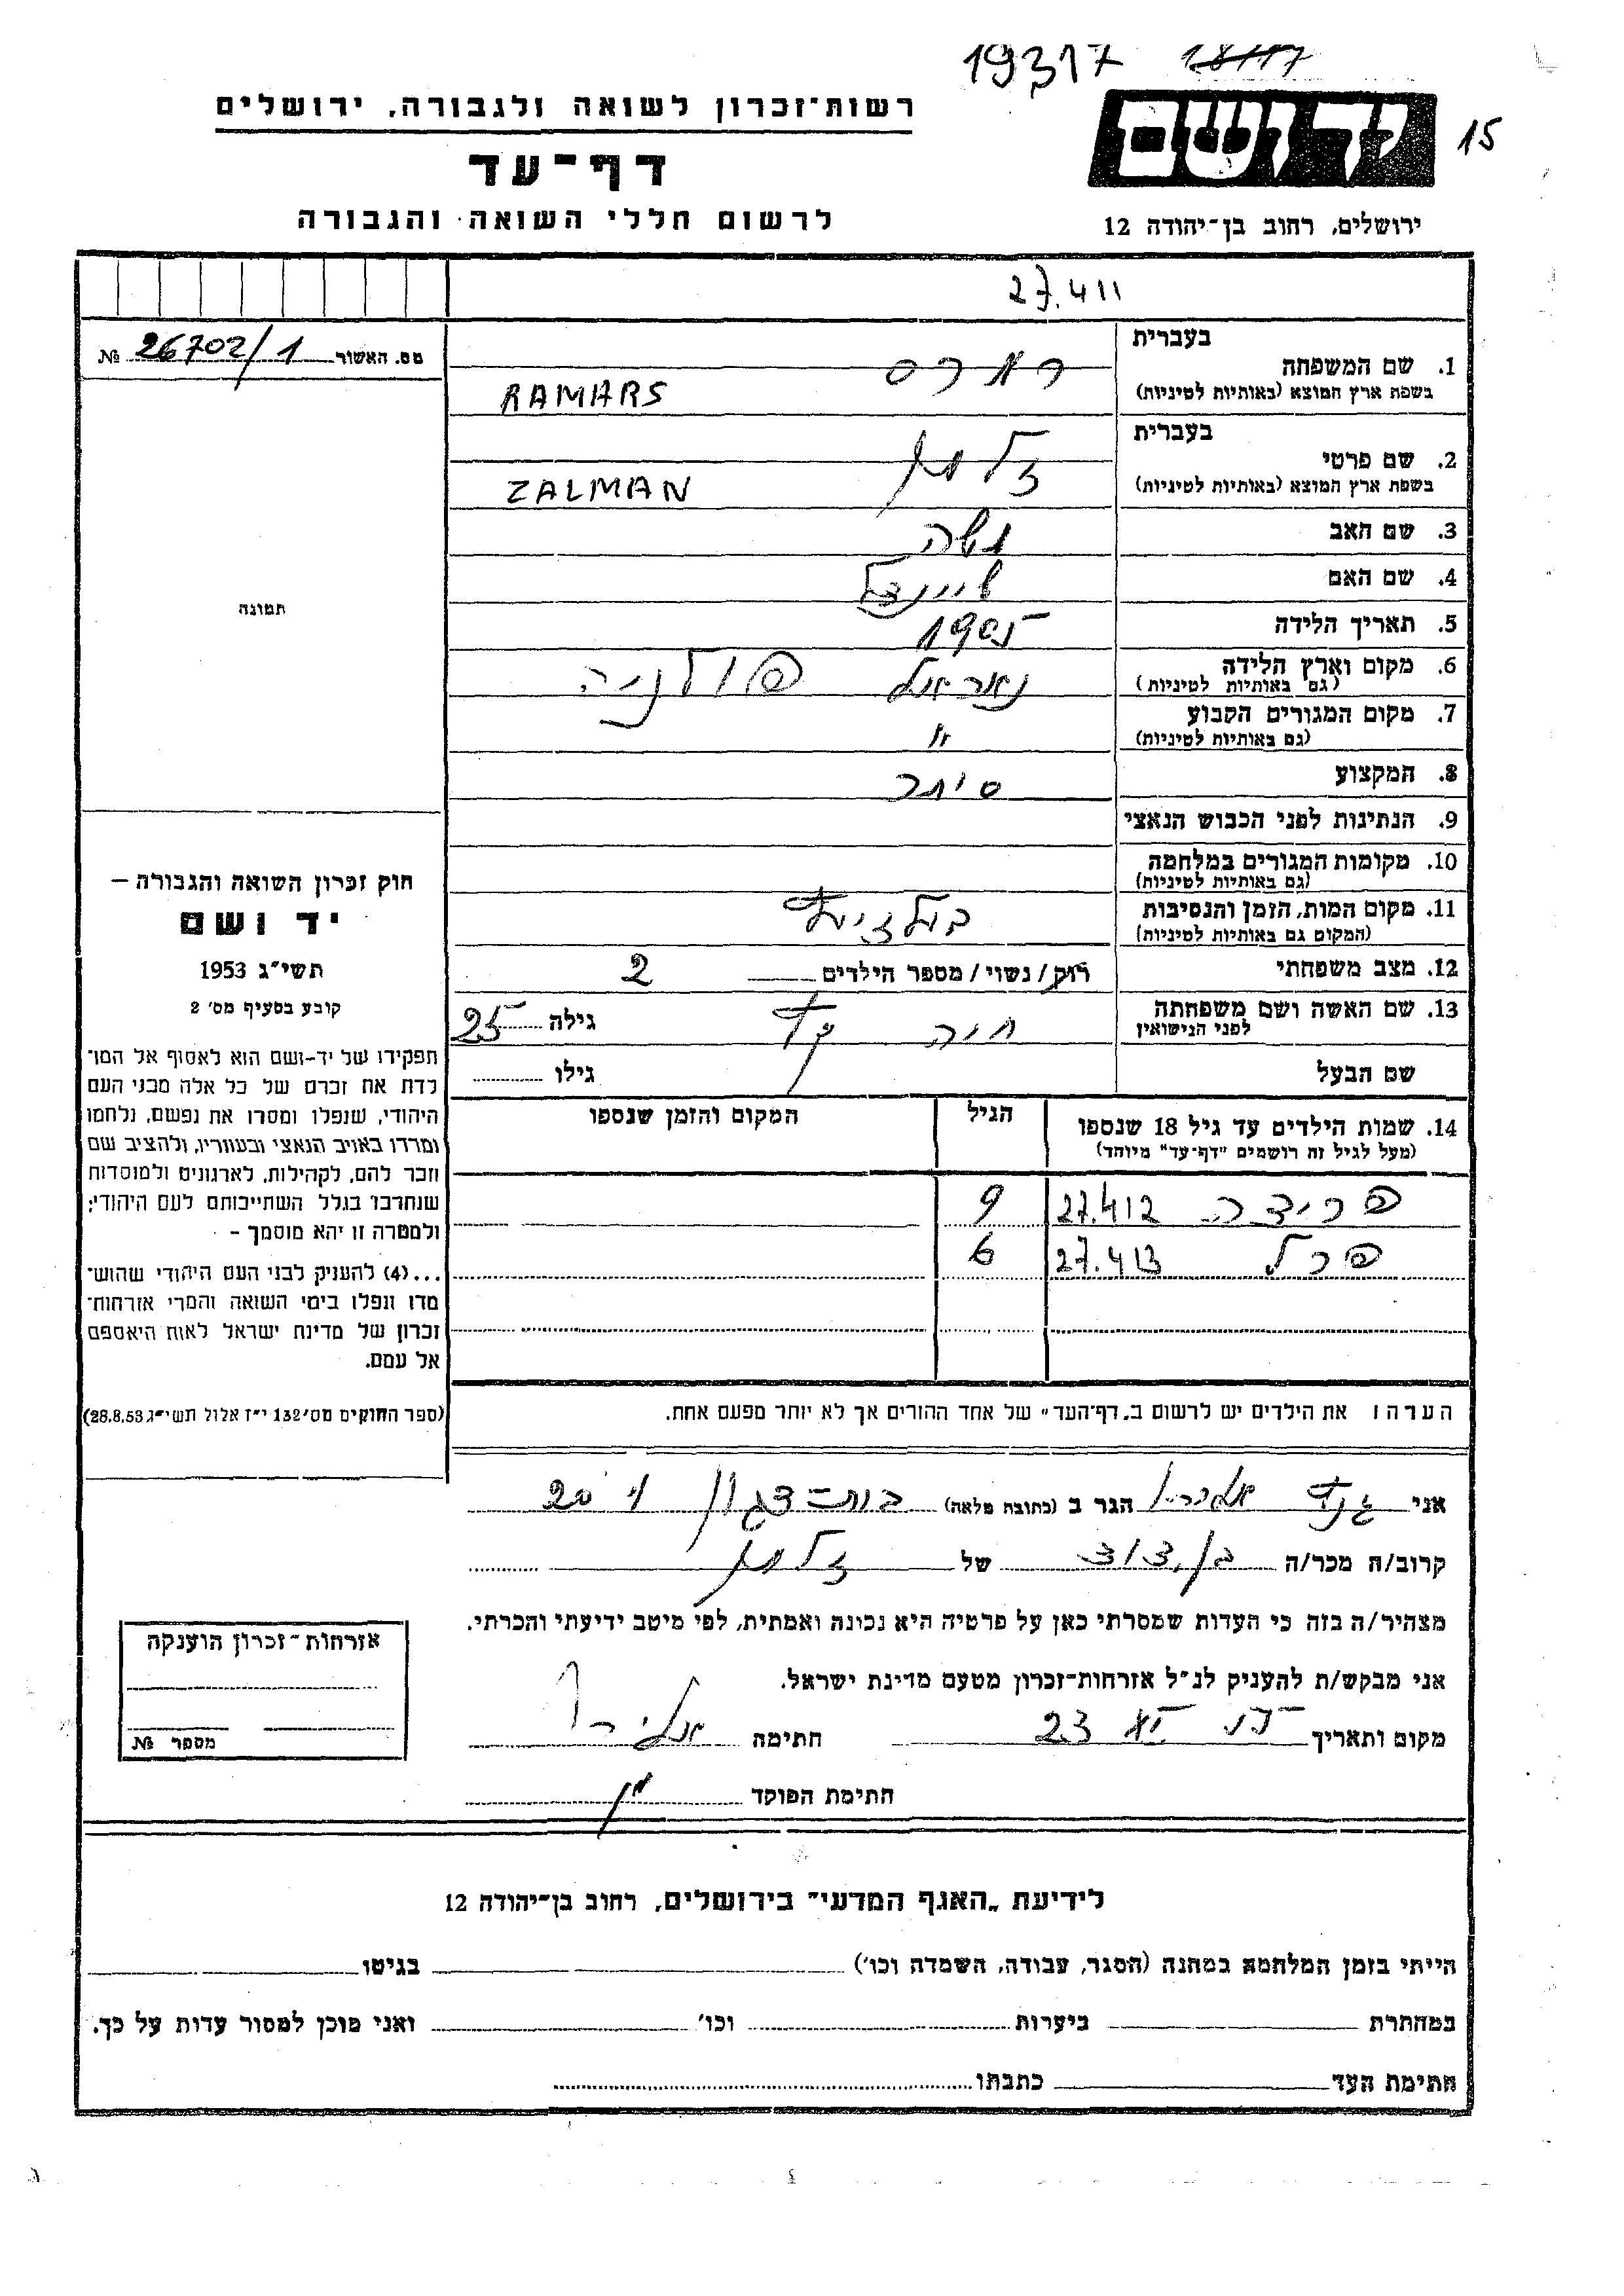 19317
15
רשות־זכרון לשואה ולגבורה, ירושלים
יד ושם
דף־עד
לרשום חללי השואה והגבורה
ירושלים, רחוב בן־יהודה 12
27.411
מס. האשור 26702/1 №
בעברית
1. שם המשפחה
בשפת ארץ המוצא (באותיות לטיניות) RAMARS
בעברית
2. שם פרטי זלמן
בשפת ארץ המוצא (באותיות לטיניות) ZALMAN
3. שם האב משה
4. שם האם
5. תאריך הלידה 1905
6. מקום וארץ הלידה פולניה
(גם באותיות לטיניות)
7. מקום המגורים הקבוע "
(גם באותיות לטיניות)
8. המקצוע סוחר
9. הנתינות לפני הכבוש הנאצי
10. מקומות המגורים במלחמה
(גם באותיות לטיניות)
11. מקום המות, הזמן והנסיבות
(המקום גם באותיות לטיניות)
12. מצב משפחתי רווק/ נשוי / מספר הילדים 2
13. שם האשה ושם משפחתה חיה גילה 25
לפני הנישואין
שם הבעל גילו
תמונה
חוק זכרון השואה והגבורה –
יד ושם
תשי״ג 1953
קובע בסעיף מס׳ 2
תפקידו של יד-ושם הוא לאסוף אל המו־
לדת את זכרם של כל אלה מבני העם
היהודי, שנפלו ומסרו את נפשם, נלחמו
ומרדו באויב הנאצי ובעוזריו, ולהציב שם
וזכר להם, לקהילות, לארגונים ולמוסדות
שנחרבו בגלל השתייכותם לעם היהודי;
ולמטרה זו יהא מוסמך –
...(4) להעניק לבני העם היהודי שהוש־
מדו ונפלו בימי השואה והמרי אזרחות־
זכרון של מדינת ישראל לאות היאספם
אל עמם.
(ספר החוקים מס׳ 132 י״ז אלול תשי״ג 28.8.53)
14. שמות הילדים עד גיל 18 שנספו הגיל המקום והזמן שנספו
(מעל לגיל זה רושמים "דף־עד" מיוחד)
פרידה 27.412 9
פרל 27.413 6
הערה: את הילדים יש לרשום ב„דף־העד״ של אחד ההורים אך לא יותר מפעם אחת.
אני הגר ב (כתובת מלאה) בית-דגון
קרוב/ה מכר/ה בן דוד של זלמן
מצהיר/ה בזה כי העדות שמסרתי כאן על פרטיה היא נכונה ואמתית, לפי מיטב ידיעתי והכרתי.
אני מבקש/ת להעניק לנ״ל אזרחות־זכרון מטעם מדינת ישראל.
מקום ותאריך 23 חתימה
חתימת הפוקד
אזרחות־זכרון הוענקה
מספר №
לידיעת „האגף המדעי״ בירושלים, רחוב בן־יהודה 12
הייתי בזמן המלחמה במחנה (הסגר, עבודה, השמדה וכו׳) בגיטו
במחתרת ביערות וכו׳ ואני מוכן למסור עדות על כך.
חתימת העד כתבתו